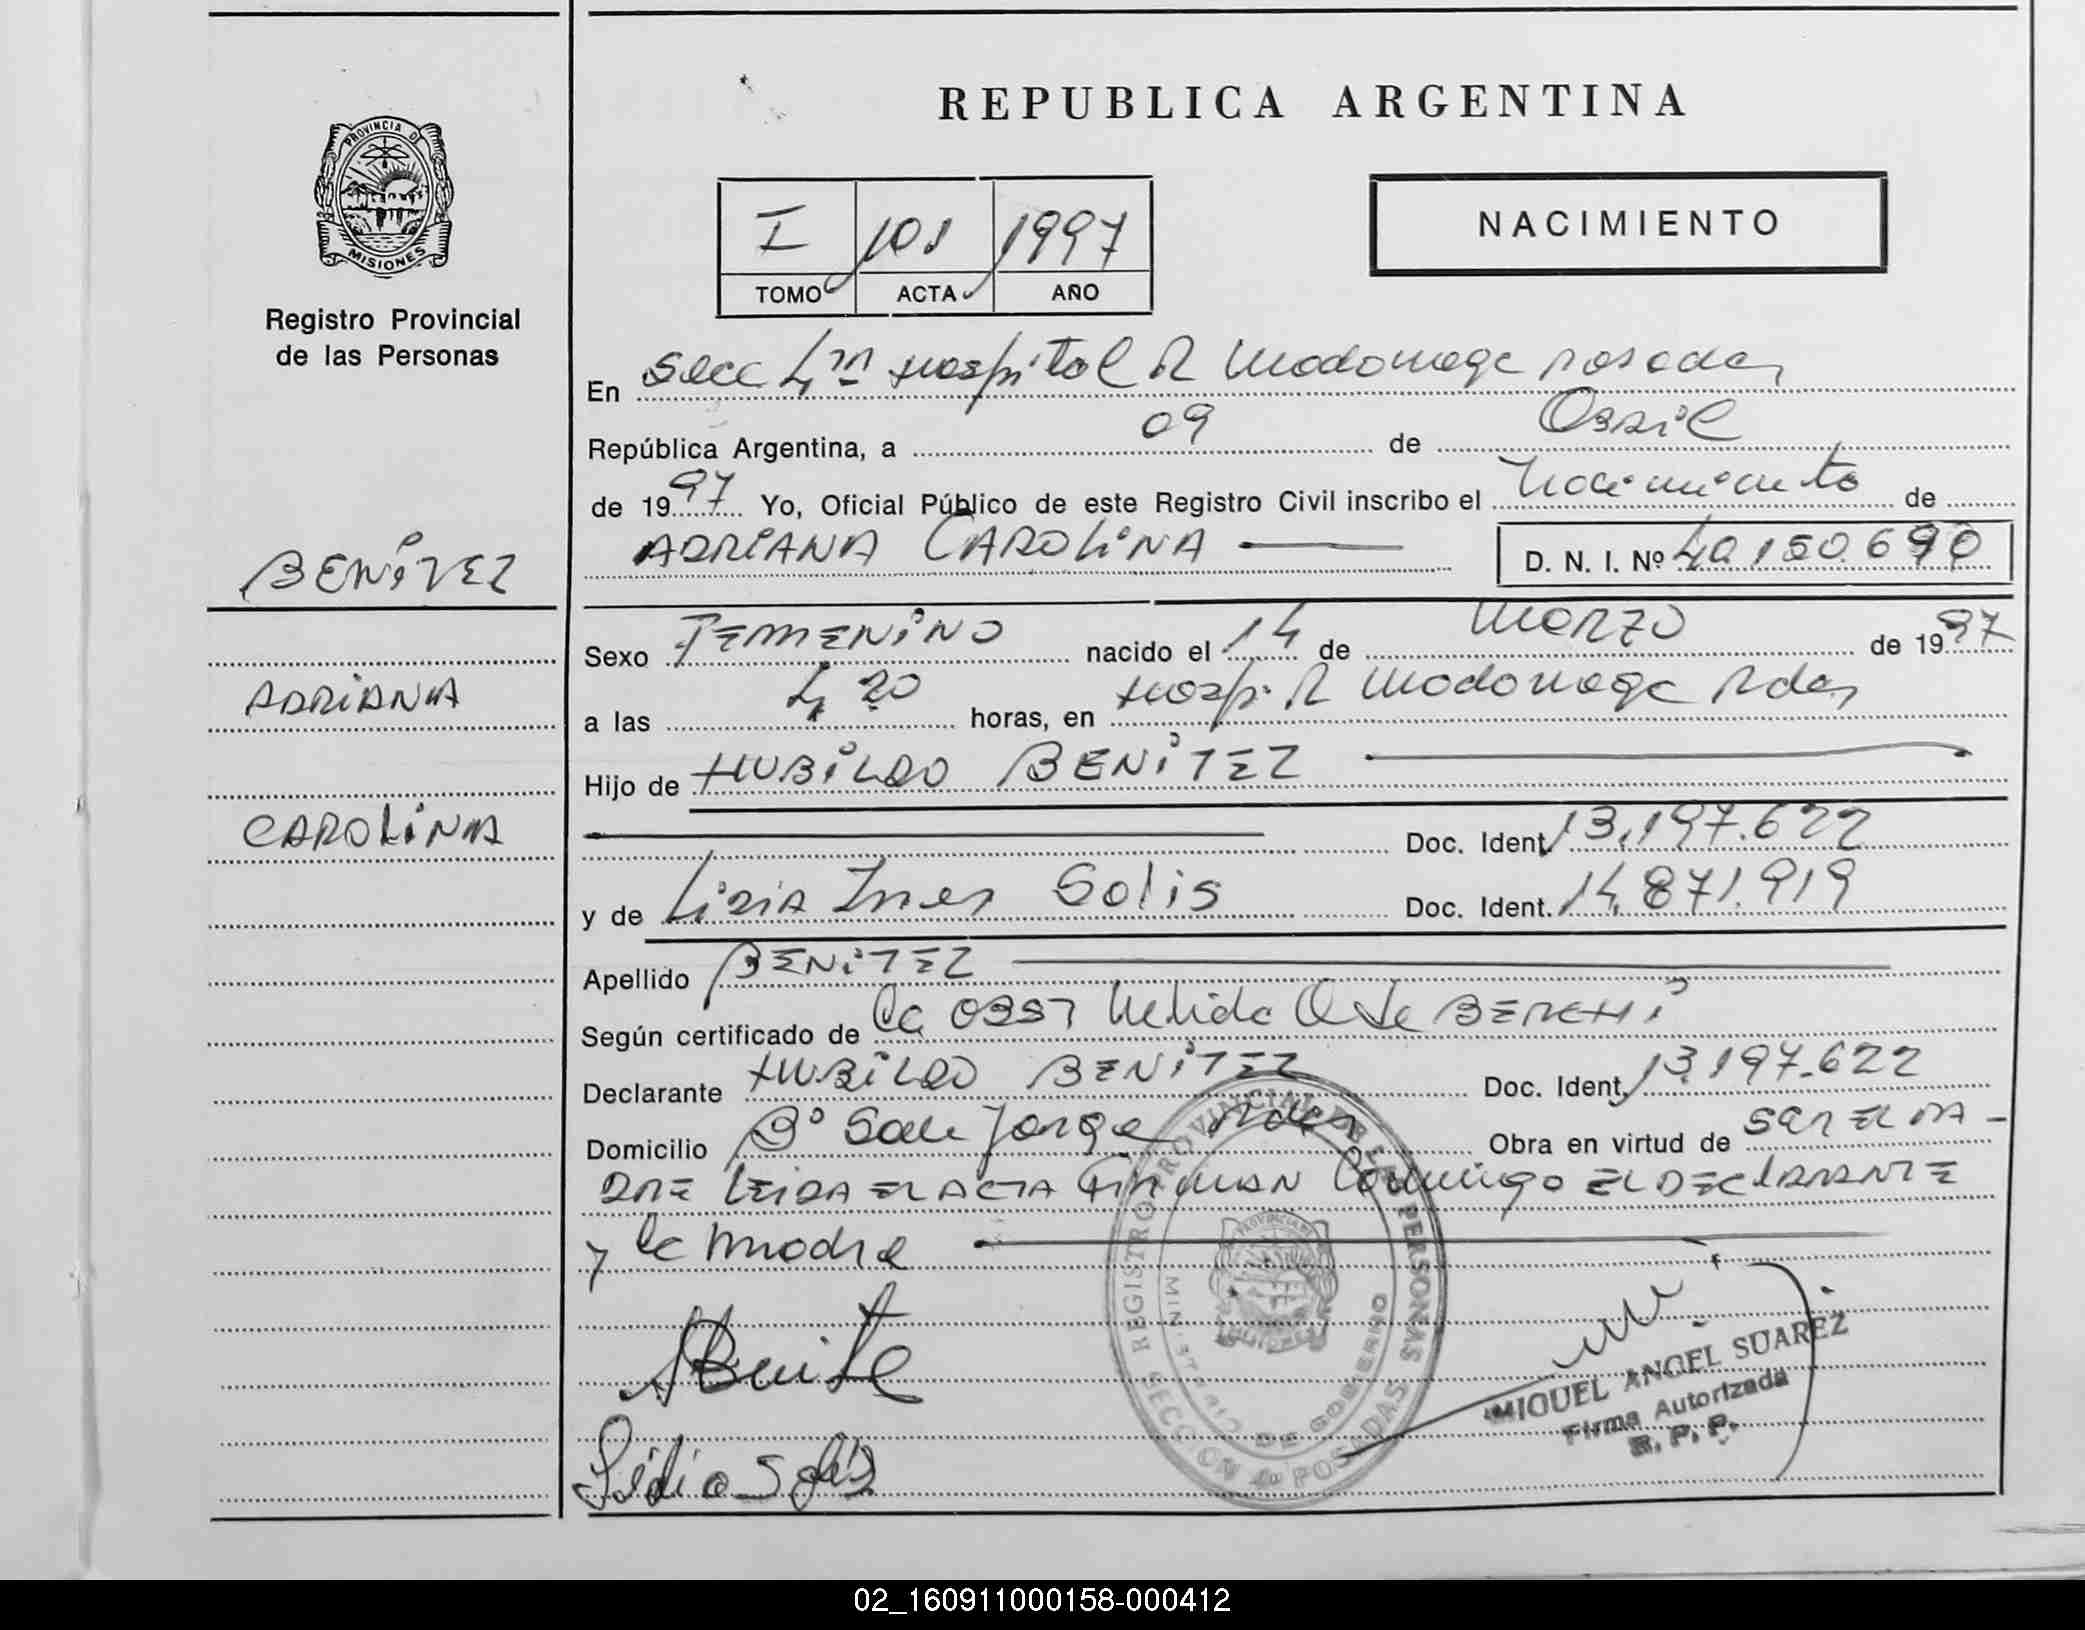 PROVINCIA DE
MISIONES
Registro Provincial
de las Personas
BENITEZ
ADRIANA
CAROLINA
REPUBLICA ARGENTINA
I 101 1997
TOMO ACTA AÑO
NACIMIENTO
En Secc 4ta Hospital R Madariaga Posadas
República Argentina, a 09 de Abril
de 1997 Yo, Oficial Público de este Registro Civil inscribo el Nacimiento de
ADRIANA CAROLINA D. N. I. Nº 40.150.690
Sexo FEMENINO nacido el 14 de Marzo de 1997
a las 4,20 horas, en Hosp. R Madariaga Pdas
Hijo de HUBILDO BENITEZ
Doc. Ident. 13.197.622
y de Lidia Ines Solis Doc. Ident. 14.871.919
Apellido BENITEZ
Según certificado de la OBST Nelida
Declarante HUBILDO BENITEZ Doc. Ident. 13.197.622
Domicilio Bº San Jorge Pdas Obra en virtud de SER EL PA-
DRE LEIDA EL ACTA FIRMAN Conmigo EL DECLARANTE
y la madre
Lidia Solis
REGISTRO PROVINCIAL DE LAS PERSONAS
MINISTERIO DE GOBIERNO
SECCION 4a POSADAS
MIGUEL ANGEL SUAREZ
Firma Autorizada
R. P. P.
02_160911000158-000412